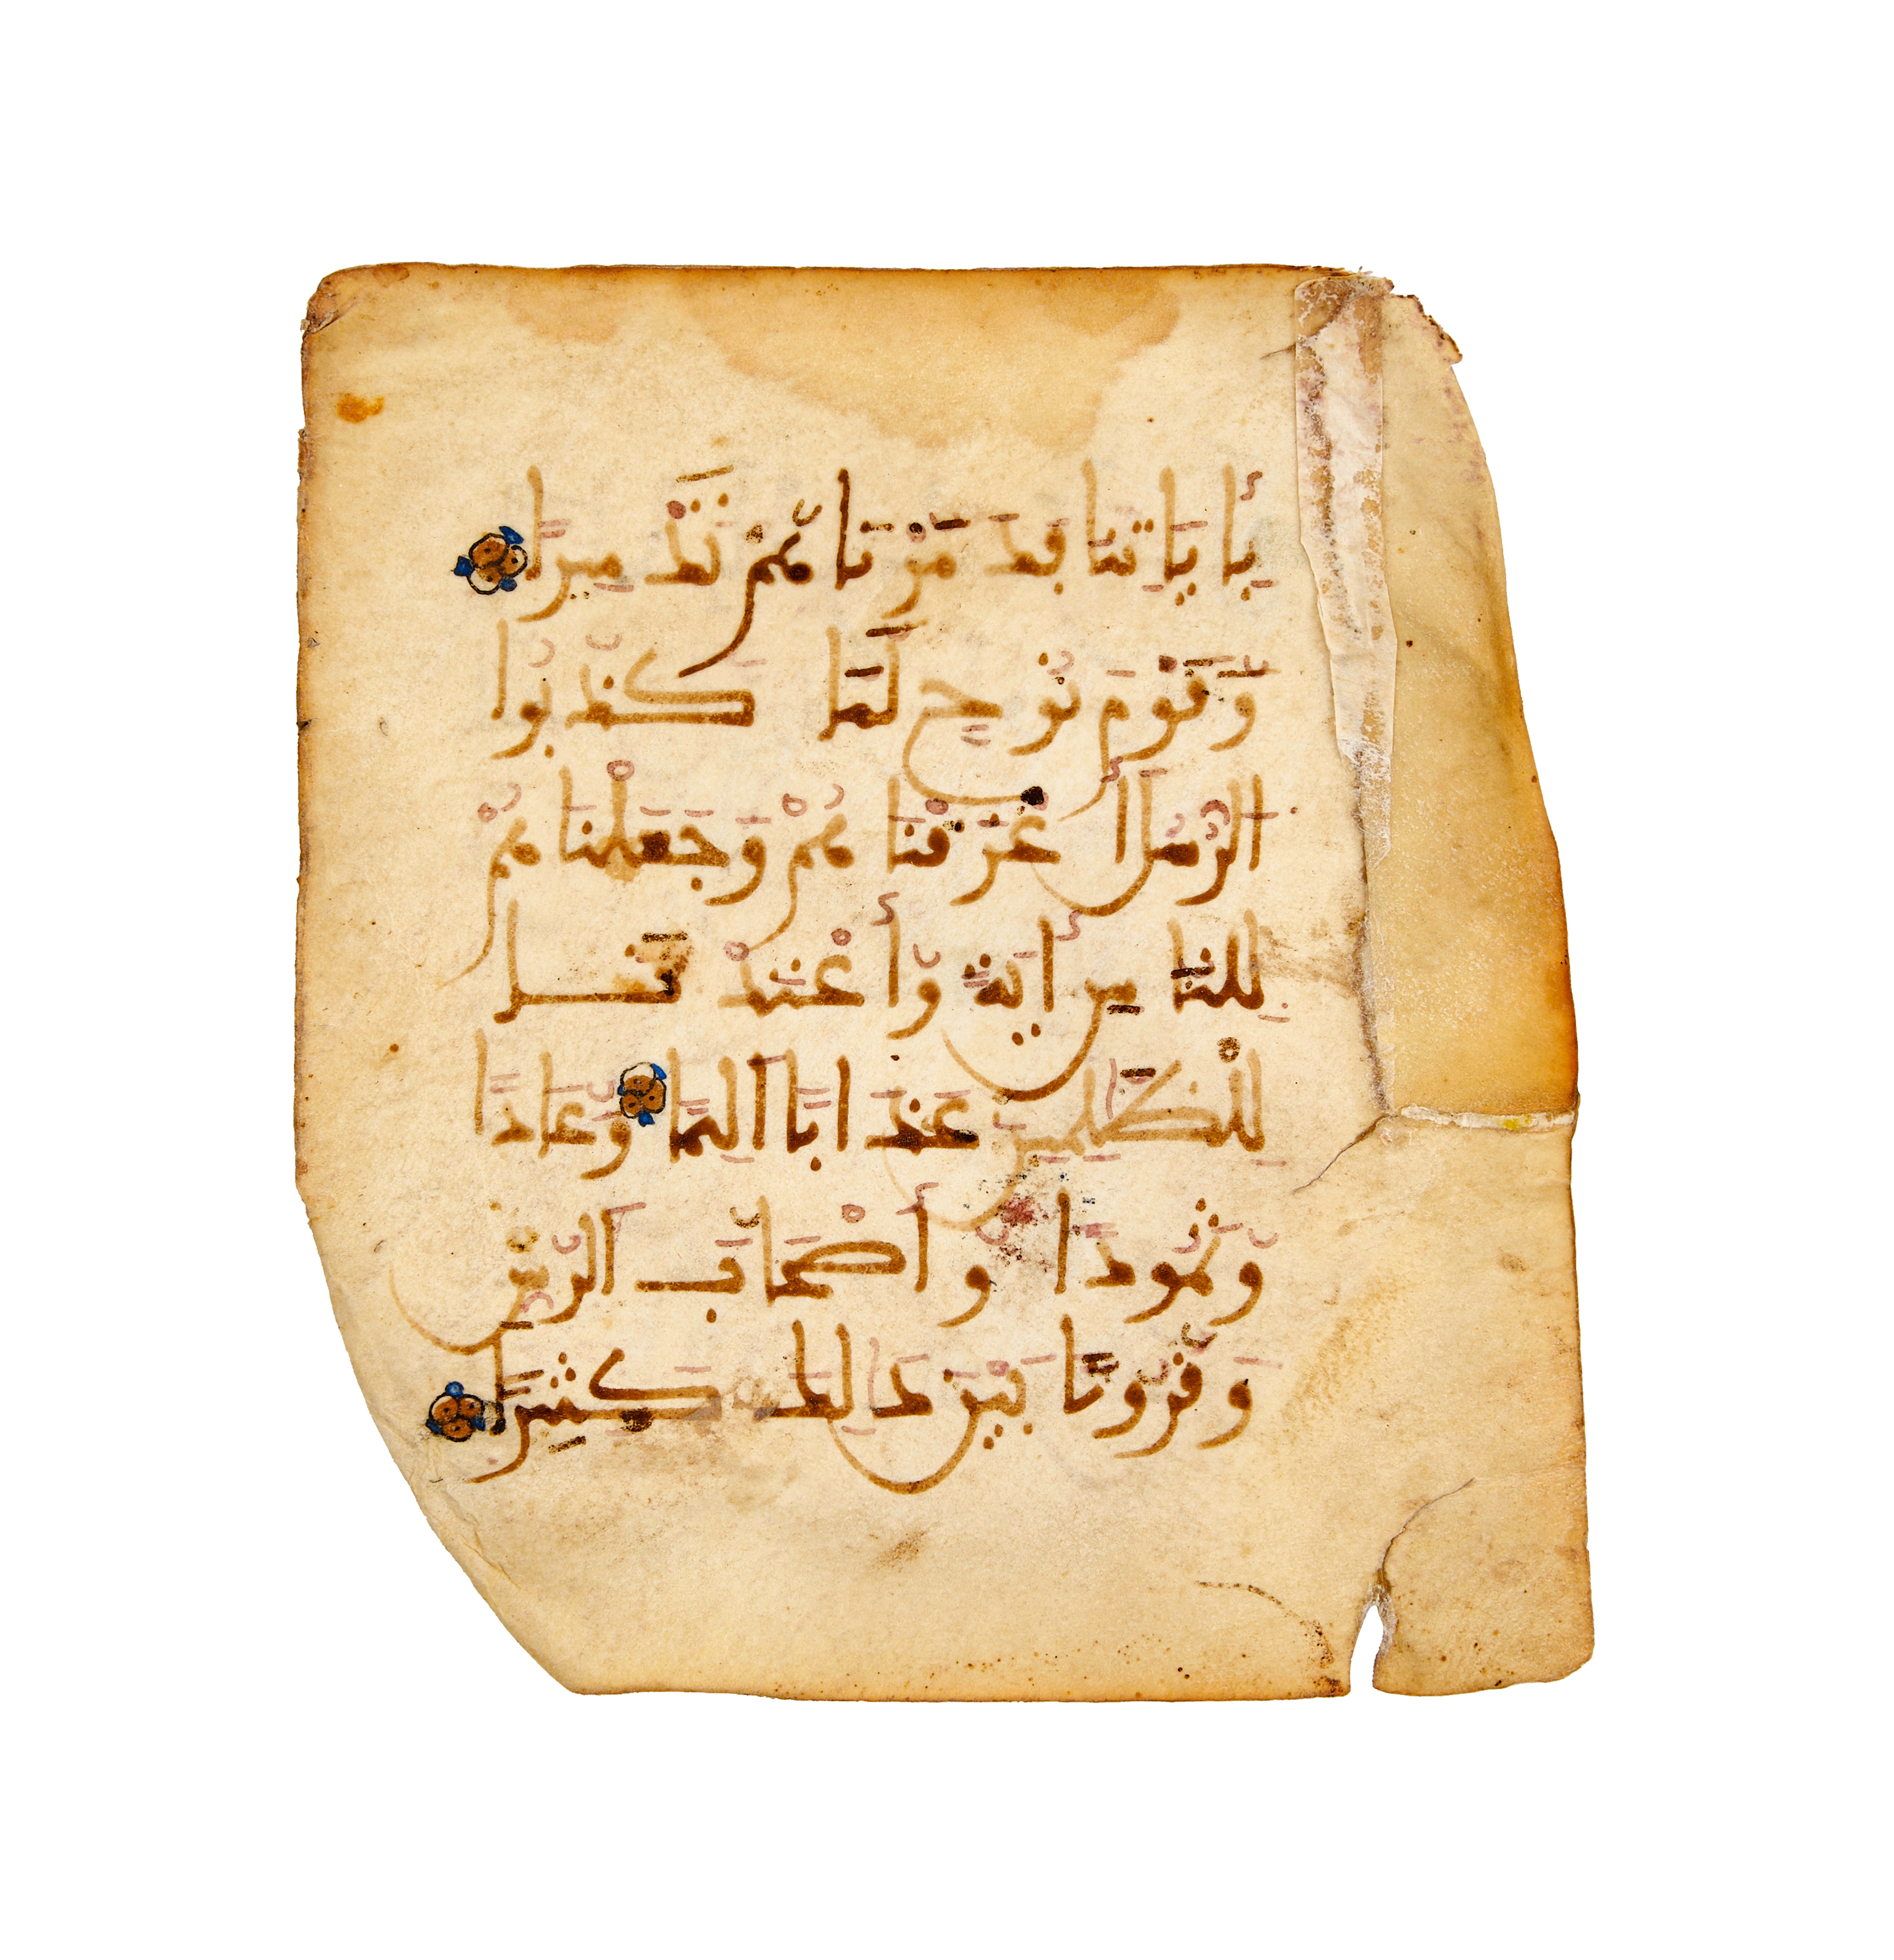 بِـَٔايَٰتِنَا فَدَمَّرْنَاهُمْ تَدْمِيرًا
وَقَوْمَ نُوحٍ لَّمَّا كَذَّبُوا
الرُّسُلَ أَغْرَقْنَاهُمْ وَجَعَلْنَاهُمْ
لِلنَّاسِ ءَايَةً وَأَعْتَدْنَا
لِلظَّٰلِمِينَ عَذَابًا أَلِيمًا وَعَادًا
وَثَمُودًا وَأَصْحَابَ الرَّسِّ
وَقُرُونًا بَيْنَ ذَٰلِكَ كَثِيرًا